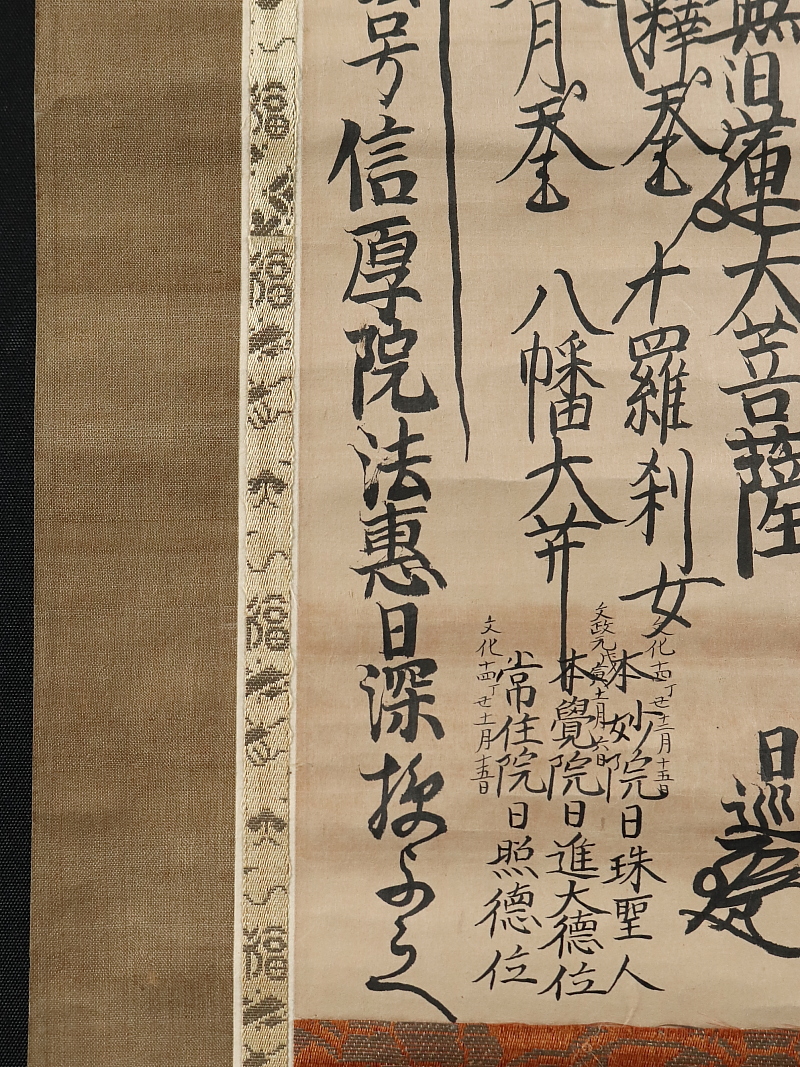 無日蓮大菩薩
日巡
釋天王
十羅刹女
月天王
八幡大菩
文化十四丁丑十二月十五日
本妙院日珠聖人
文政元戊寅十一月六日
本覺院日進大德位
文化十四丁丑十一月十五日
常住院日照德位
号信厚院法惠日深授与之